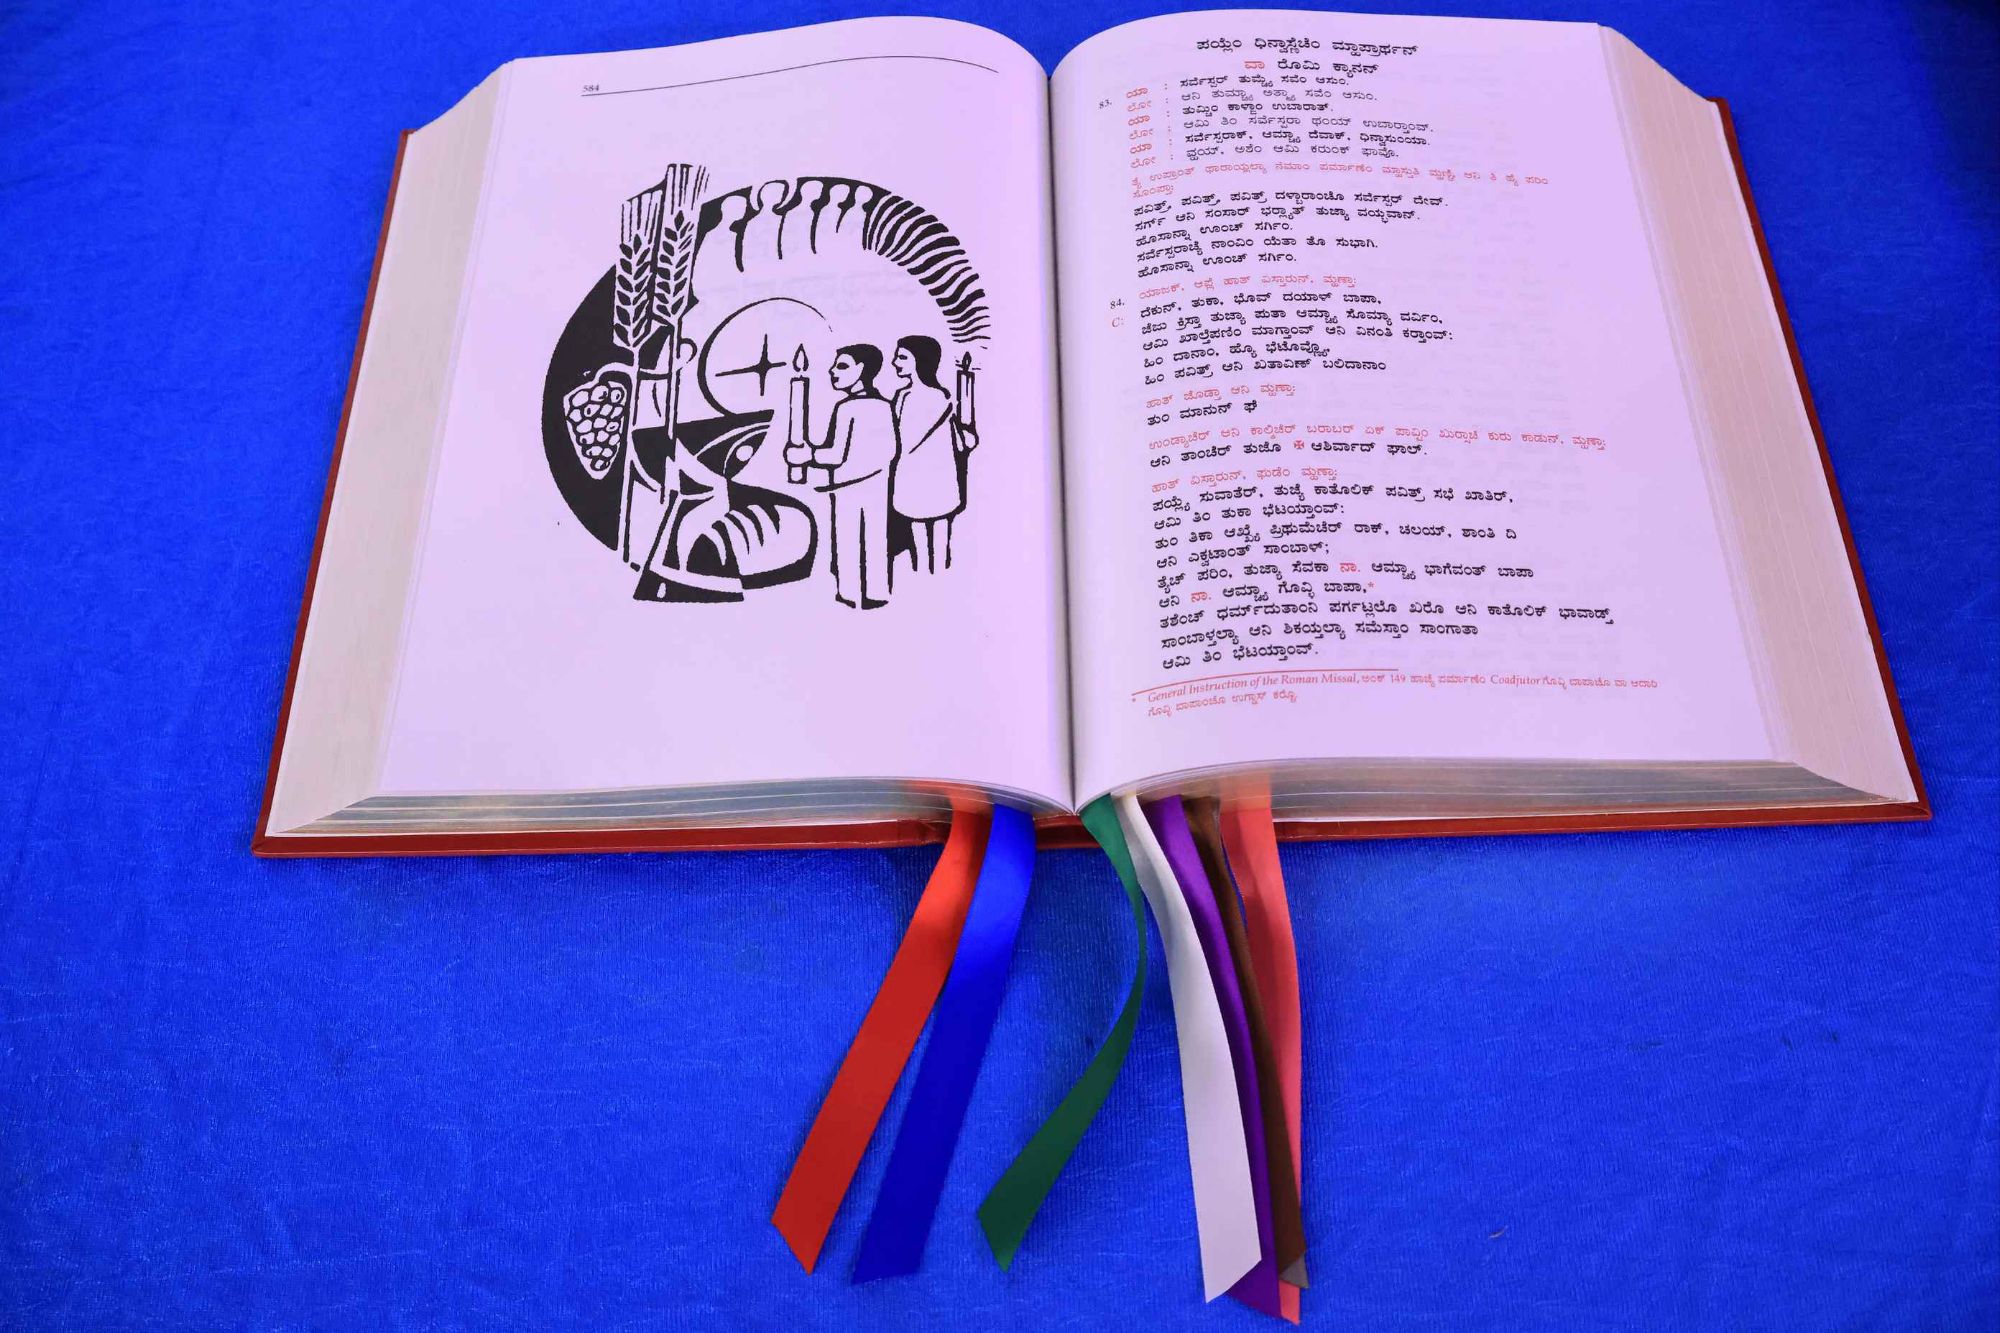 584
ಪಯ್ಲೆಂ ಧಿನ್ವಾಸ್ಣೆಚೆಂ ಮ್ಹಾಪ್ರಾರ್ಥನ್
ವಾ ರೊಮಿ ಕ್ಯಾನನ್
83. ಯಾ : ಸರ್ವೆಸ್ಪರ್ ತುಮ್ಚ್ಯೆ ಸವೆಂ ಆಸುಂ.
ಲೋ : ಆನಿ ತುಮ್ಚ್ಯಾ ಅತ್ಮ್ಯಾ ಸವೆಂ ಆಸುಂ.
ಯಾ : ತುಮ್ಚಿಂ ಕಾಳ್ಜಾಂ ಉಬಾರಾತ್.
ಲೋ : ಆಮಿ ತಿಂ ಸರ್ವೆಸ್ಪರಾ ಥಂಯ್ ಉಬಾರ್‍ತಾಂವ್.
ಯಾ : ಸರ್ವೆಸ್ಪರಾಕ್, ಆಮ್ಚ್ಯಾ ದೆವಾಕ್, ಧಿನ್ವಾಸುಂಯಾ.
ಲೋ : ವ್ಹಯ್, ಅಶೆಂ ಆಮಿ ಕರುಂಕ್ ಫಾವೊ.
ತ್ಯೆ ಉಪ್ರಾಂತ್ ಥಾರಾಯ್ಲಲ್ಯಾ ನೆಮಾಂ ಪರ್ಮಾಣೆಂ ಮ್ಹಾಸ್ತುತಿ ಮ್ಹಣ್ಚಿ, ಆನಿ ತಿ ಹ್ಯೆ ಪರಿಂ
ಸೊಂಪ್ತಾ:
ಪವಿತ್ರ್, ಪವಿತ್ರ್, ಪವಿತ್ರ್ ದಳ್ಬಾರಾಂಚೊ ಸರ್ವೆಸ್ಪರ್ ದೇವ್.
ಸರ್ಗ್ ಆನಿ ಸಂಸಾರ್ ಭರ್‍ಲ್ಯಾತ್ ತುಜ್ಯಾ ವಯ್ಭವಾನ್.
ಹೊಸಾನ್ನಾ ಊಂಚ್ ಸರ್ಗಿಂ.
ಸರ್ವೆಸ್ಪರಾಚ್ಯೆ ನಾಂವಿಂ ಯೆತಾ ತೊ ಸುಭಾಗಿ.
ಹೊಸಾನ್ನಾ ಊಂಚ್ ಸರ್ಗಿಂ.
84. ಯಾಜಕ್, ಆಪ್ಲೆ ಹಾತ್ ವಿಸ್ತಾರುನ್, ಮ್ಹಣ್ತಾ:
C: ದೆಕುನ್, ತುಕಾ, ಭೊವ್ ದಯಾಳ್ ಬಾಪಾ,
ಜೆಜು ಕ್ರಿಸ್ತಾ ತುಜ್ಯಾ ಪುತಾ ಆಮ್ಚ್ಯಾ ಸೊಮ್ಯಾ ವರ್ವಿಂ,
ಆಮಿ ಖಾಲ್ತೆಪಣಿಂ ಮಾಗ್ತಾಂವ್ ಆನಿ ವಿನಂತಿ ಕರ್‍ತಾಂವ್:
ಹಿಂ ದಾನಾಂ, ಹ್ಯೊ ಭೆಟೊವ್ಣ್ಯೊ,
ಹಿಂ ಪವಿತ್ರ್ ಆನಿ ಖತಾವಿಣ್ ಬಲಿದಾನಾಂ
ಹಾತ್ ಜೊಡ್ತಾ ಆನಿ ಮ್ಹಣ್ತಾ:
ತುಂ ಮಾನುನ್ ಘೆ
ಉಂಡ್ಯಾಚೆರ್ ಆನಿ ಕಾಲ್ಸಿಚೆರ್ ಬರಾಬರ್ ಏಕ್ ಪಾವ್ಟಿಂ ಖುರ್ಸಾಚಿ ಕುರು ಕಾಡುನ್, ಮ್ಹಣ್ತಾ:
ಆನಿ ತಾಂಚೆರ್ ತುಜೊ ✠ ಆಶಿರ್ವಾದ್ ಘಾಲ್.
ಹಾತ್ ವಿಸ್ತಾರುನ್, ಫುಡೆಂ ಮ್ಹಣ್ತಾ:
ಪಯ್ಲ್ಯೆ ಸುವಾತೆರ್, ತುಜ್ಯೆ ಕಾತೊಲಿಕ್ ಪವಿತ್ರ್ ಸಭೆ ಖಾತಿರ್,
ಆಮಿ ತಿಂ ತುಕಾ ಭೆಟಯ್ತಾಂವ್:
ತುಂ ತಿಕಾ ಆಖ್ಖ್ಯೆ ಪ್ರಿಥುಮೆಚೆರ್ ರಾಕ್, ಚಲಯ್, ಶಾಂತಿ ದಿ
ಆನಿ ಎಕ್ವಟಾಂತ್ ಸಾಂಬಾಳ್;
ತ್ಯೆಚ್ ಪರಿಂ, ತುಜ್ಯಾ ಸೆವಕಾ ನಾ. ಆಮ್ಚ್ಯಾ ಭಾಗೆವಂತ್ ಬಾಪಾ
ಆನಿ ನಾ. ಆಮ್ಚ್ಯಾ ಗೊವ್ಳಿ ಬಾಪಾ,*
ತಶೆಂಚ್ ಧರ್ಮ್‌ದುತಾಂನಿ ಪರ್ಗಟ್ಲಲೊ ಖರೊ ಆನಿ ಕಾತೊಲಿಕ್ ಭಾವಾಡ್ತ್
ಸಾಂಬಾಳ್ತಲ್ಯಾ ಆನಿ ಶಿಕಯ್ತಲ್ಯಾ ಸಮೆಸ್ತಾಂ ಸಾಂಗಾತಾ
ಆಮಿ ತಿಂ ಭೆಟಯ್ತಾಂವ್.
* General Instruction of the Roman Missal, ಅಂಕ್ 149 ಹಾಚ್ಯೆ ಪರ್ಮಾಣೆಂ Coadjutor ಗೊವ್ಳಿ ಬಾಪಾಚೊ ವಾ ಆದಾರಿ
ಗೊವ್ಳಿ ಬಾಪಾಂಚೊ ಉಗ್ಡಾಸ್ ಕರ್‍ಯೆ.